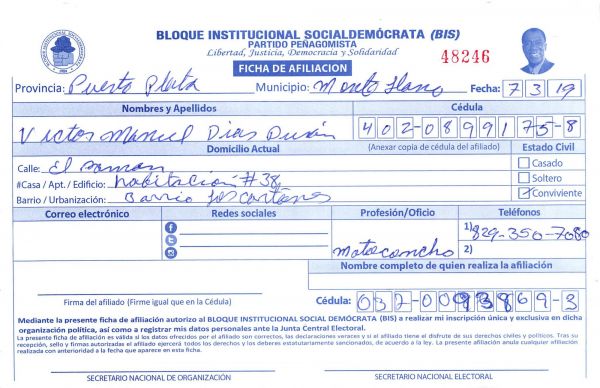 BLOQUE INSTITUCIONAL SOCIALDEMÓCRATA (BIS)
PARTIDO PEÑAGOMISTA
Libertad, Justicia, Democracia y Solidaridad
48246
FICHA DE AFILIACION
Provincia: Puerto Plata Municipio: Monte Llano Fecha: 7 3 19
Nombres y Apellidos Cédula
Victor Manuel Dias Durán 402-0899175-8
Domicilio Actual (Anexar copia de cédula del afiliado) Estado Civil
Calle: El Saman Casado
#Casa / Apt. / Edificio: habitacion #38 Soltero
Barrio / Urbanización: Barrio Los Cartones Conviviente
Correo electrónico Redes sociales Profesión/Oficio Teléfonos
1) 829-350-7080
motoconcho 2)
Nombre completo de quien realiza la afiliación
Firma del afiliado (Firme igual que en la Cédula) Cédula: 037-0093869-3
Mediante la presente ficha de afiliación autorizo al BLOQUE INSTITUCIONAL SOCIAL DEMÓCRATA (BIS) a realizar mi inscripción única y exclusiva en dicha
organización política, así como a registrar mis datos personales ante la Junta Central Electoral.
La presente ficha de afiliación es válida si los datos ofrecidos por el afiliado son correctos, las declaraciones veraces y si el afiliado tiene el disfrute de sus derechos civiles y políticos. Tras su
recepción, sello y firmas autorizadas el afiliado ejercerá todos los derechos y los deberes estatutariamente sancionados, de acuerdo a la ley. La presente afiliación anula cualquier afiliación
realizada con anterioridad a la fecha que aparece en esta ficha.
SECRETARIO NACIONAL DE ORGANIZACIÓN SECRETARIO NACIONAL ELECTORAL